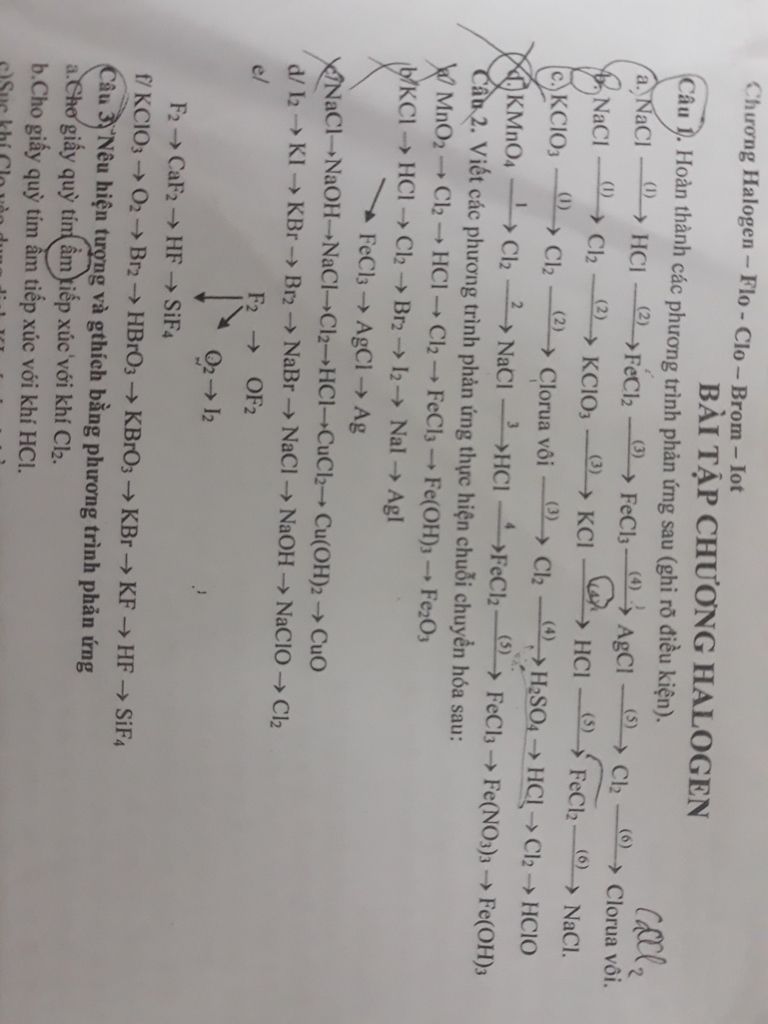 Chương Halogen – Flo - Clo – Brom – Iot
BÀI TẬP CHƯƠNG HALOGEN
Câu 1. Hoàn thành các phương trình phản ứng sau (ghi rõ điều kiện).
a. NaCl —(1)→ HCl —(2)→ FeCl2 —(3)→ FeCl3 —(4)→ AgCl —(5)→ Cl2 —(6)→ Clorua vôi.
b. NaCl —(1)→ Cl2 —(2)→ KClO3 —(3)→ KCl —(4)→ HCl —(5)→ FeCl2 —(6)→ NaCl.
c. KClO3 —(1)→ Cl2 —(2)→ Clorua vôi —(3)→ Cl2 —(4)→ H2SO4 → HCl → Cl2 → HClO
d. KMnO4 —1→ Cl2 —2→ NaCl —3→ HCl —4→ FeCl2 —(5)→ FeCl3 → Fe(NO3)3 → Fe(OH)3
Câu 2. Viết các phương trình phản ứng thực hiện chuỗi chuyển hóa sau:
a/ MnO2 → Cl2 → HCl → Cl2 → FeCl3 → Fe(OH)3 → Fe2O3
b/ KCl → HCl → Cl2 → Br2 → I2 → NaI → AgI
→ FeCl3 → AgCl → Ag
c/ NaCl→NaOH→NaCl→Cl2→HCl→CuCl2→ Cu(OH)2 → CuO
d/ I2 → KI → KBr → Br2 → NaBr → NaCl → NaOH → NaClO → Cl2
e/
F2 → OF2
O2 → I2
F2 → CaF2 → HF → SiF4
f/ KClO3 → O2 → Br2 → HBrO3 → KBrO3 → KBr → KF → HF → SiF4
Câu 3. Nêu hiện tượng và gthích bằng phương trình phản ứng
a.Cho giấy quỳ tím ẩm tiếp xúc với khí Cl2.
b.Cho giấy quỳ tím ẩm tiếp xúc với khí HCl.
c)Sục khí Clo vào dung dịch